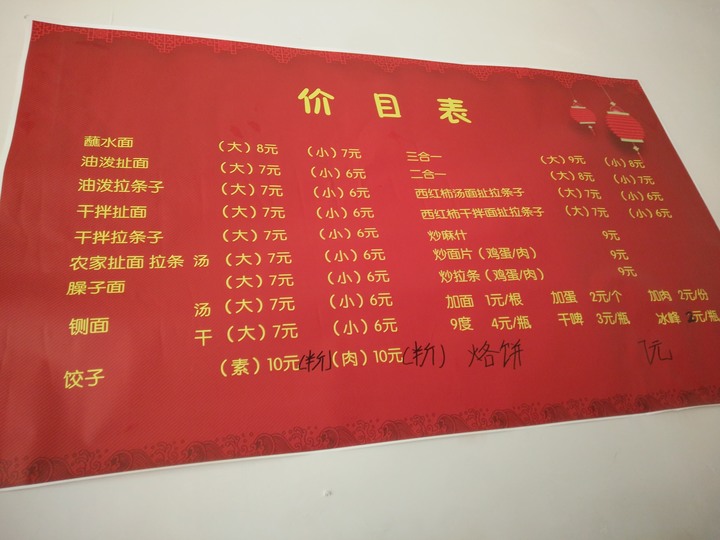 价目表
蘸水面 (大) 8元 (小) 7元
油泼扯面 (大) 7元 (小) 6元
油泼拉条子 (大) 7元 (小) 6元
干拌扯面 (大) 7元 (小) 6元
干拌拉条子 (大) 7元 (小) 6元
农家扯面 拉条 汤 (大) 7元 (小) 6元
臊子面 (大) 7元 (小) 6元
铡面 汤 (大) 7元 (小) 6元
干 (大) 7元 (小) 6元
饺子 (素) 10元 (肉) 10元
三合一 (大) 9元 (小) 8元
二合一 (大) 8元 (小) 7元
西红柿汤面扯拉条子 (大) 7元 (小) 6元
西红柿干拌面扯拉条子 (大) 7元 (小) 6元
炒麻什 9元
炒面片 (鸡蛋/肉) 9元
炒拉条 (鸡蛋/肉) 9元
加面 1元/根 加蛋 2元/个 加肉 2元/份
9度 4元/瓶 干啤 3元/瓶 冰峰 元/瓶
烙饼 1元